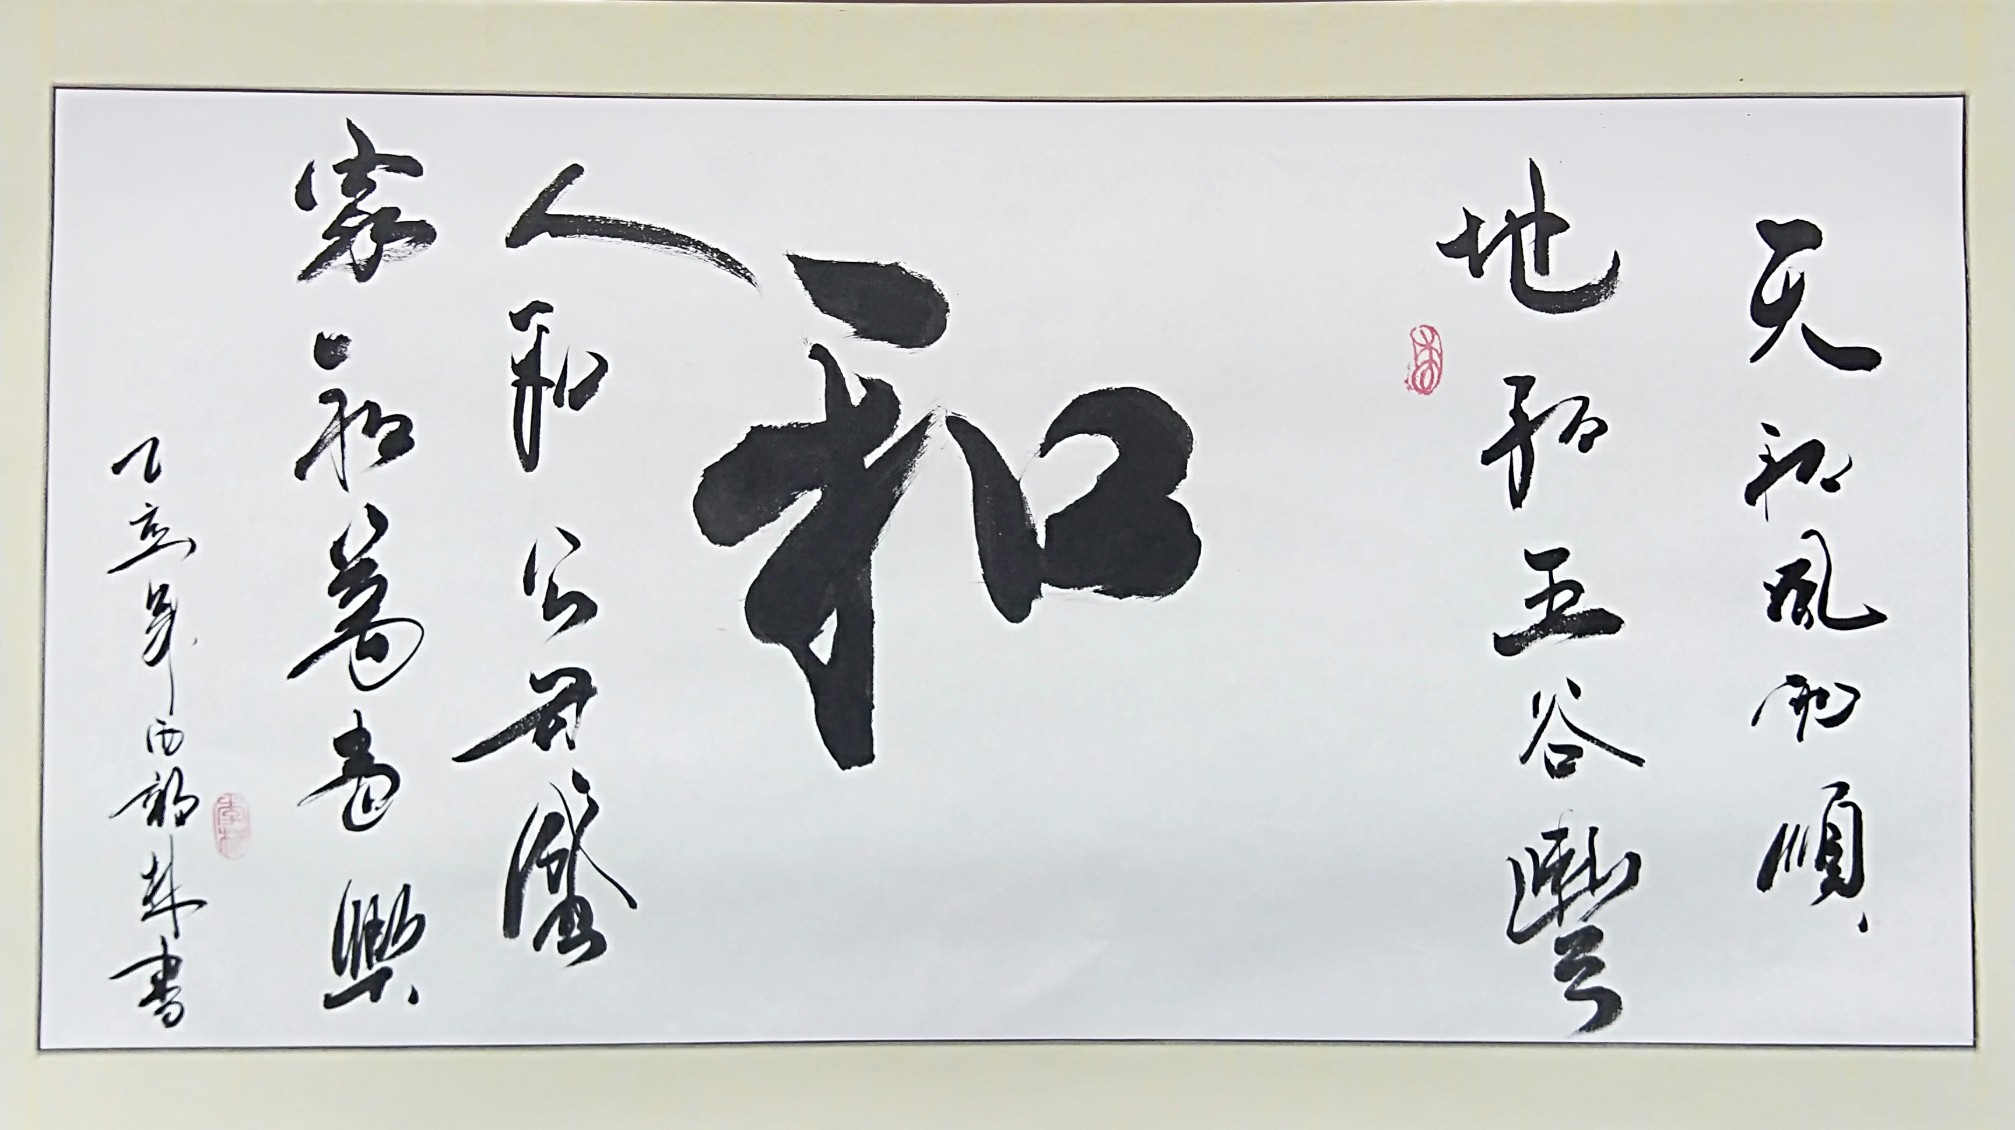 天和風雨順
地和五谷豐
和
人和盛
家和萬事興
亥年西部林書